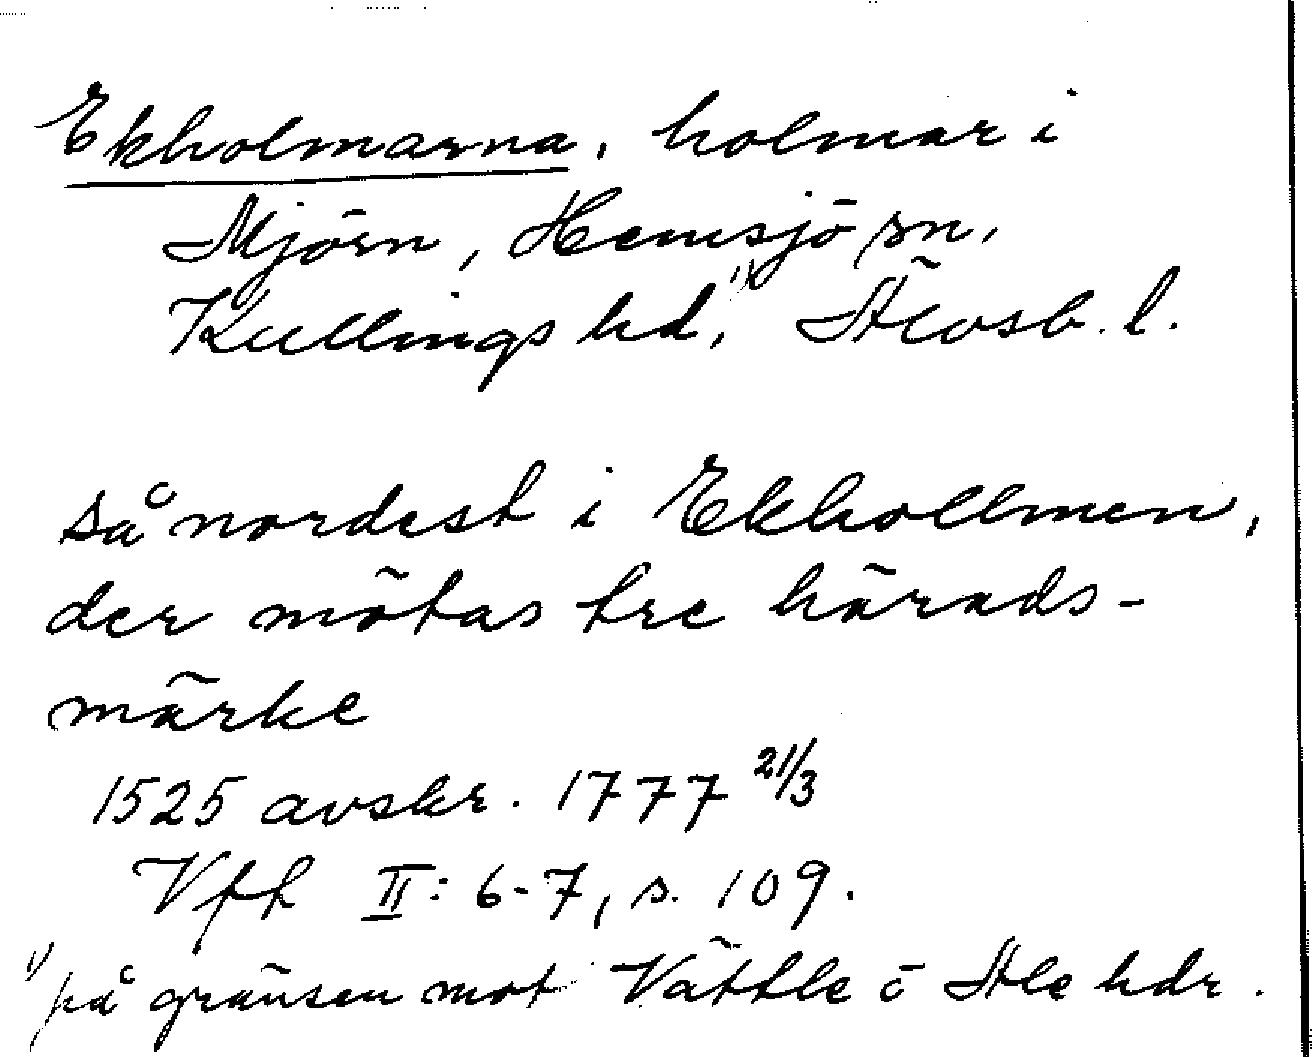 Ekholmarna, holmar i
Mjörn, Hemsjö sn,
Kullings hd,¹⁾ Älvsb. l.
så nordest i Ekhollmen,
der mötas tre härads-
märke
1525 avskr. 1777 21/3
Vfh II: 6-7, s. 109.
¹⁾ på gränsen mot Vättle o Ale hdr.